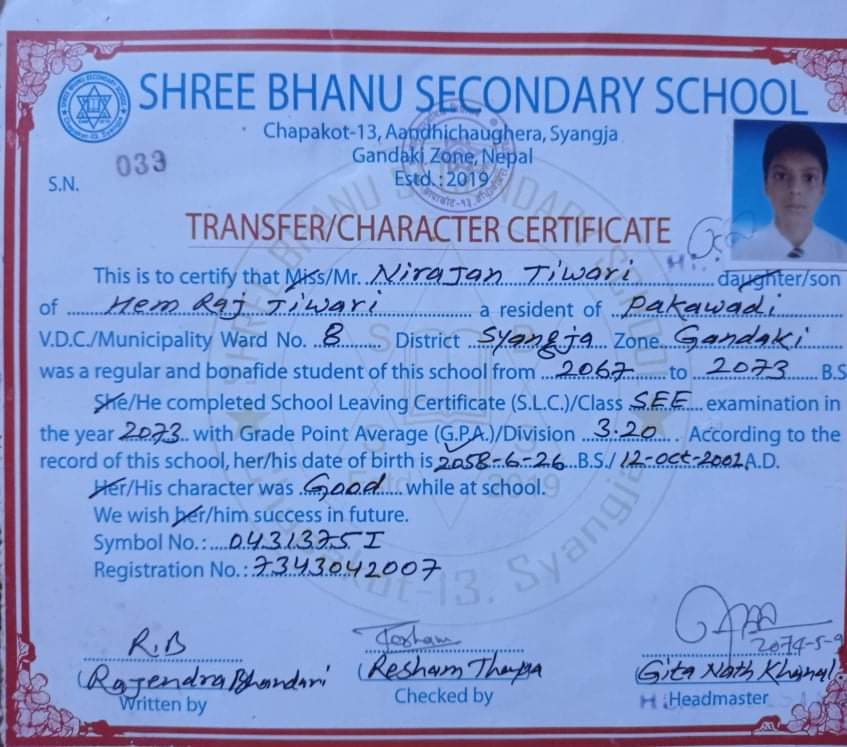 SHREE BHANU SECONDARY SCHOOL
Chapakot-13, Aandhichaughera, Syangja
Gandaki Zone, Nepal
Estd.: 2019
S.N. 033
TRANSFER/CHARACTER CERTIFICATE
This is to certify that Miss/Mr. Nirajan Tiwari daughter/son
of Hem Raj Tiwari a resident of Pakawadi
V.D.C./Municipality Ward No. 8 District Syangja Zone Gandaki
was a regular and bonafide student of this school from 2067 to 2073 B.S
She/He completed School Leaving Certificate (S.L.C.)/Class SEE examination in
the year 2073 with Grade Point Average (G.P.A.)/Division 3.20. According to the
record of this school, her/his date of birth is 2058-6-26 B.S./ 12-Oct-2001 A.D.
Her/His character was Good while at school.
We wish her/him success in future.
Symbol No.: 0431375 I
Registration No.: 7343042007
R.B
2074-5-9
Rajendra Bhandari Resham Thapa Gita Nath Khanal
Written by Checked by Headmaster